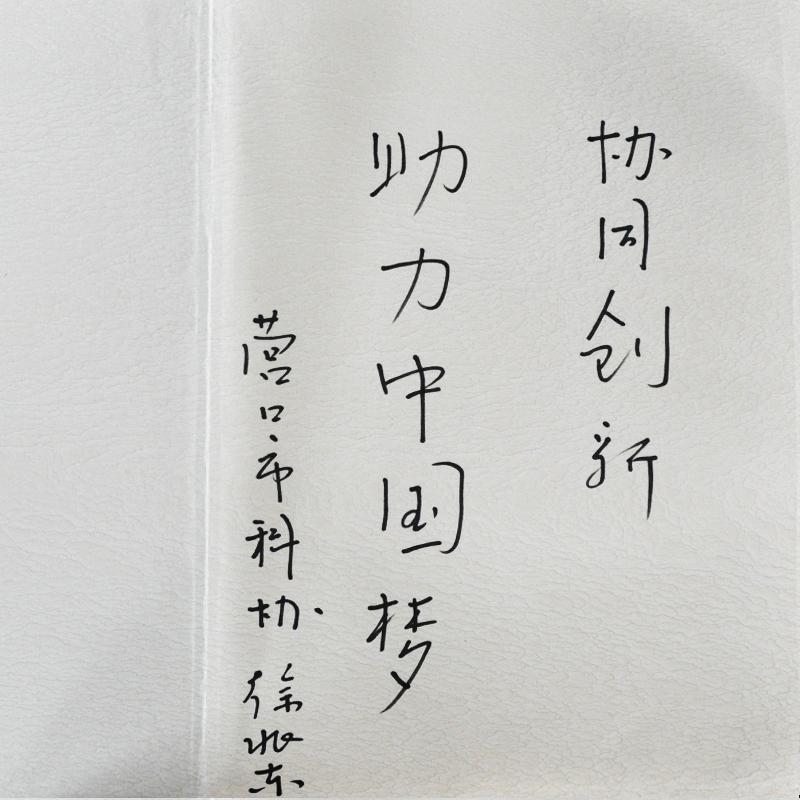 协同创新
助力中国梦
营口市科协 徐兆东